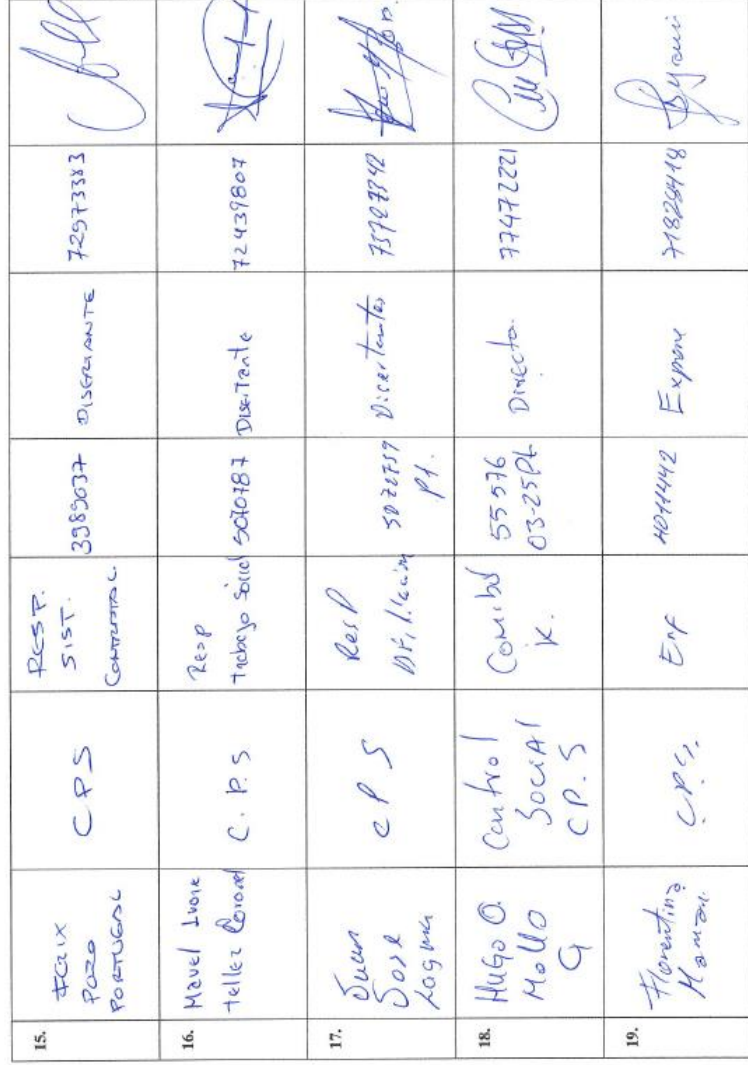 15.
FELIX
POZO
PORTUGAL
CPS
RESP.
SIST.
CONTRATAC.
3989037
DISERTANTE
72973383
16.
Mavel Ivone
Tellez Coronel
C.P.S
Resp
Trabajo Social
5070787
Disertante
72439807
17.
Juan
Jose
Laguna
CPS
Resp
Afiliación
5072759
Pt.
Dicertantes
18.
HUGO O.
Mollo
G
Control
SOCIAl
CP.S
Comibol
K.
55576
03-25Pt
Directo.
77472221
19.
Florentino
Mamani
C.P.S.
Enf
Expone
71829418